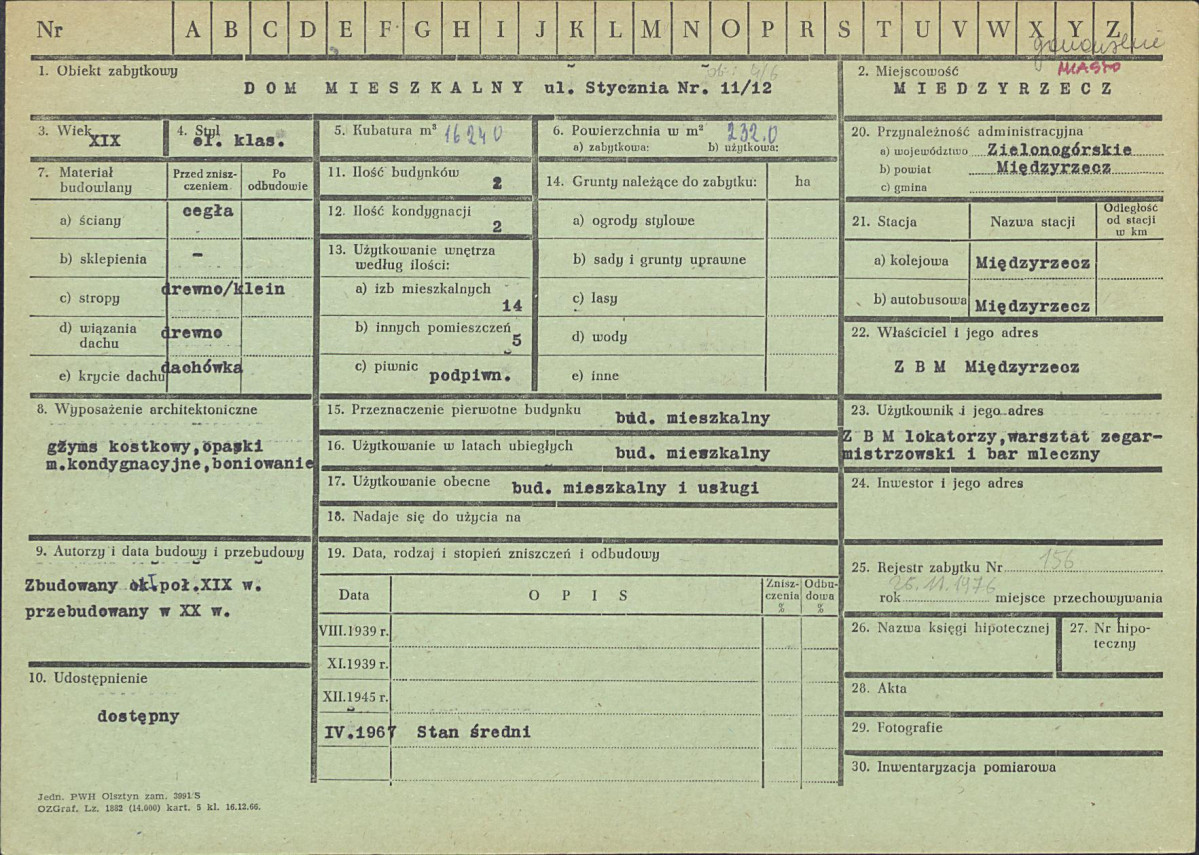 Nr A B C D E F G H I J K L M N O P R S T U V W X Y Z
1. Obiekt zabytkowy
DOM MIESZKALNY ul. Stycznia Nr. 11/12
2. Miejscowość MIASTO
MIEDZYRZECZ
3. Wiek
XIX
4. Styl
el. klas.
5. Kubatura m³ 16240
6. Powierzchnia w m² 232.0
a) zabytkowa: b) użytkowa:
20. Przynależność administracyjna
a) województwo Zielonogórskie
b) powiat Międzyrzecz
c) gmina
7. Materiał budowlany
Przed zniszczeniem
Po odbudowie
a) ściany cegła
b) sklepienia -
c) stropy drewno/klein
d) wiązania dachu drewno
e) krycie dachu dachówka
11. Ilość budynków 2
12. Ilość kondygnacji 2
13. Użytkowanie wnętrza
według ilości:
a) izb mieszkalnych 14
b) innych pomieszczeń 5
c) piwnic podpiwn.
14. Grunty należące do zabytku: ha
a) ogrody stylowe
b) sady i grunty uprawne
c) lasy
d) wody
e) inne
21. Stacja Nazwa stacji Odległość od stacji w km
a) kolejowa Międzyrzecz
b) autobusowa Międzyrzecz
22. Właściciel i jego adres
Z B M Międzyrzecz
8. Wyposażenie architektoniczne
gzyms kostkowy,opaski
m.kondygnacyjne,boniowanie
15. Przeznaczenie pierwotne budynku bud. mieszkalny
16. Użytkowanie w latach ubiegłych bud. mieszkalny
17. Użytkowanie obecne bud. mieszkalny i usługi
18. Nadaje się do użycia na
23. Użytkownik i jego adres
Z B M lokatorzy,warsztat zegar-
mistrzowski i bar mleczny
24. Inwestor i jego adres
9. Autorzy i data budowy i przebudowy
Zbudowany ok.poł.XIX w.
przebudowany w XX w.
10. Udostępnienie
dostępny
19. Data, rodzaj i stopień zniszczeń i odbudowy
Data OPIS Zniszczenia % Odbudowa %
VIII.1939 r.
XI.1939 r.
XII.1945 r.
IV.1967 Stan średni
25. Rejestr zabytku Nr 156
rok 26.11.1976 miejsce przechowywania
26. Nazwa księgi hipotecznej
27. Nr hipo-
teczny
28. Akta
29. Fotografie
30. Inwentaryzacja pomiarowa
Jedn. PWH Olsztyn zam. 3991/S
OZGraf. Lz. 1882 (14.000) kart. 5 kl. 16.12.66.